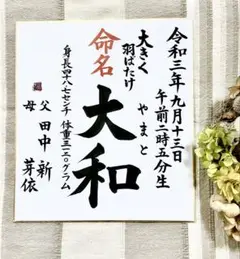 令和三年九月十三日
午前二時五分生
大きく
羽ばたけ
やまと
命名
大和
身長四十八七センチ 体重三一二〇グラム
父 田中 新
母 芽依